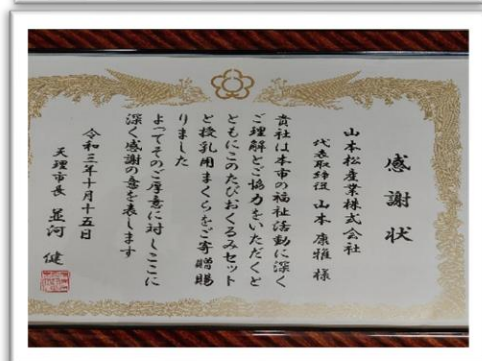 感謝状
山本松産業株式会社
代表取締役 山本 康雅 様
貴社は本市の福祉活動に深く
ご理解とご協力をいただくと
ともにこのたびおくるみセット
と授乳用まくらをご寄贈賜
りました
よってそのご厚意に対しここに
深く感謝の意を表します
令和三年十月十五日
天理市長 並河 健